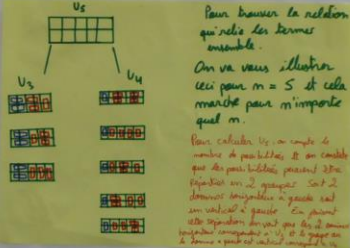 U5
U3
U4
Pour trouver la relation
qui relie les termes
ensemble.
On va vous illustrer
ceci pour n = 5 et cela
marche pour n'importe
quel n.
Pour calculer U5, on compte le
nombre de possibilités et on constate
que les possibilités peuvent être
réparties en 2 groupes. Soit 2
dominos horizontaux à gauche soit
un vertical à gauche. En faisant
cette séparation on voit que les 2 dominos
horizontaux correspondent à U3 et le groupe au